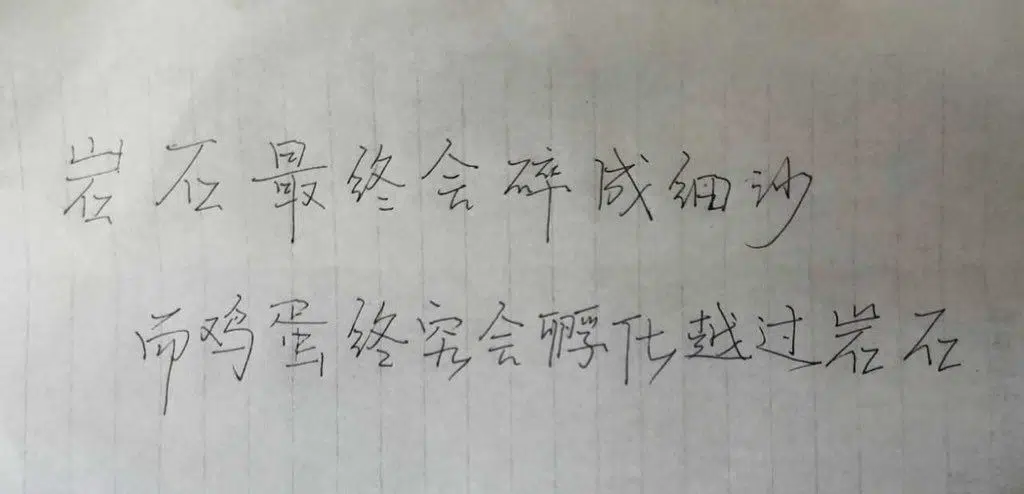 岩石最终会碎成细沙
而鸡蛋终究会孵化越过岩石